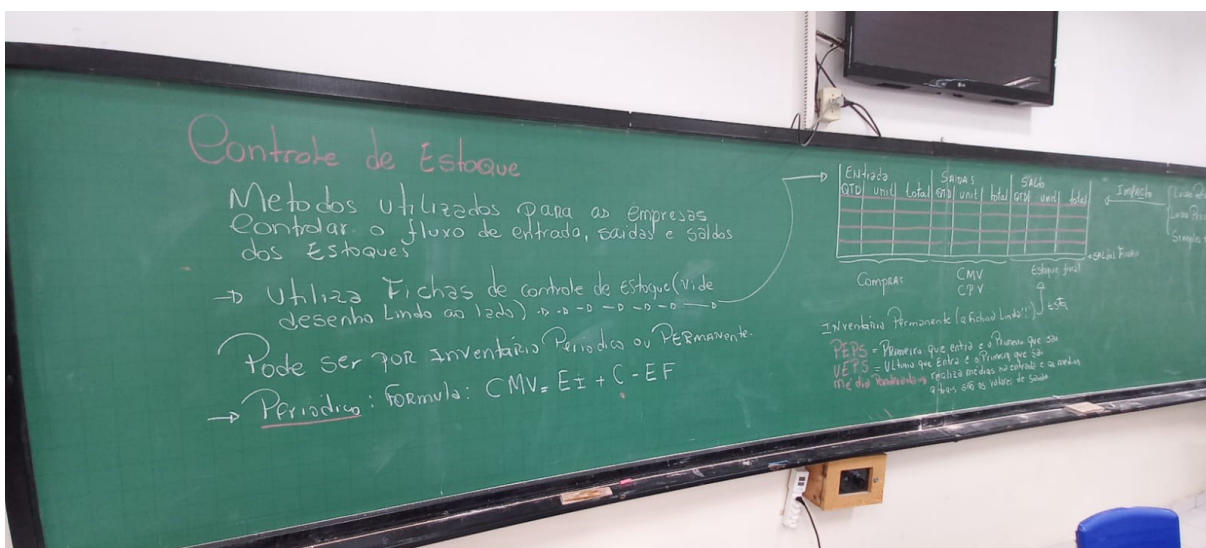 Controle de Estoque
Metodos utilizados para as empresas
Controlar o fluxo de entrada, saídas e saldos
dos Estoques
→ Utiliza Fichas de controle de estoque (vide
desenho Lindo ao lado)
Pode ser por Inventário Periodico ou Permanente.
→ Periodico: Formula: CMV = EI + C - EF
Entrada Saídas Saldo
QTD unit total QTD unit total QTD unit total
Impacto
Lucro
Lucro
Simples
Saldos Finais
Compras CMV Estoque final
CPV
Inventário Permanente (a ficha Linda!!) Esta
PEPS = Primeiro que entra e o Primeiro que sai
UEPS = Ultimo que Entra e o Primeiro que sai
média Ponderada = realiza médias na entrada e as medias
atuais são os valores de saida